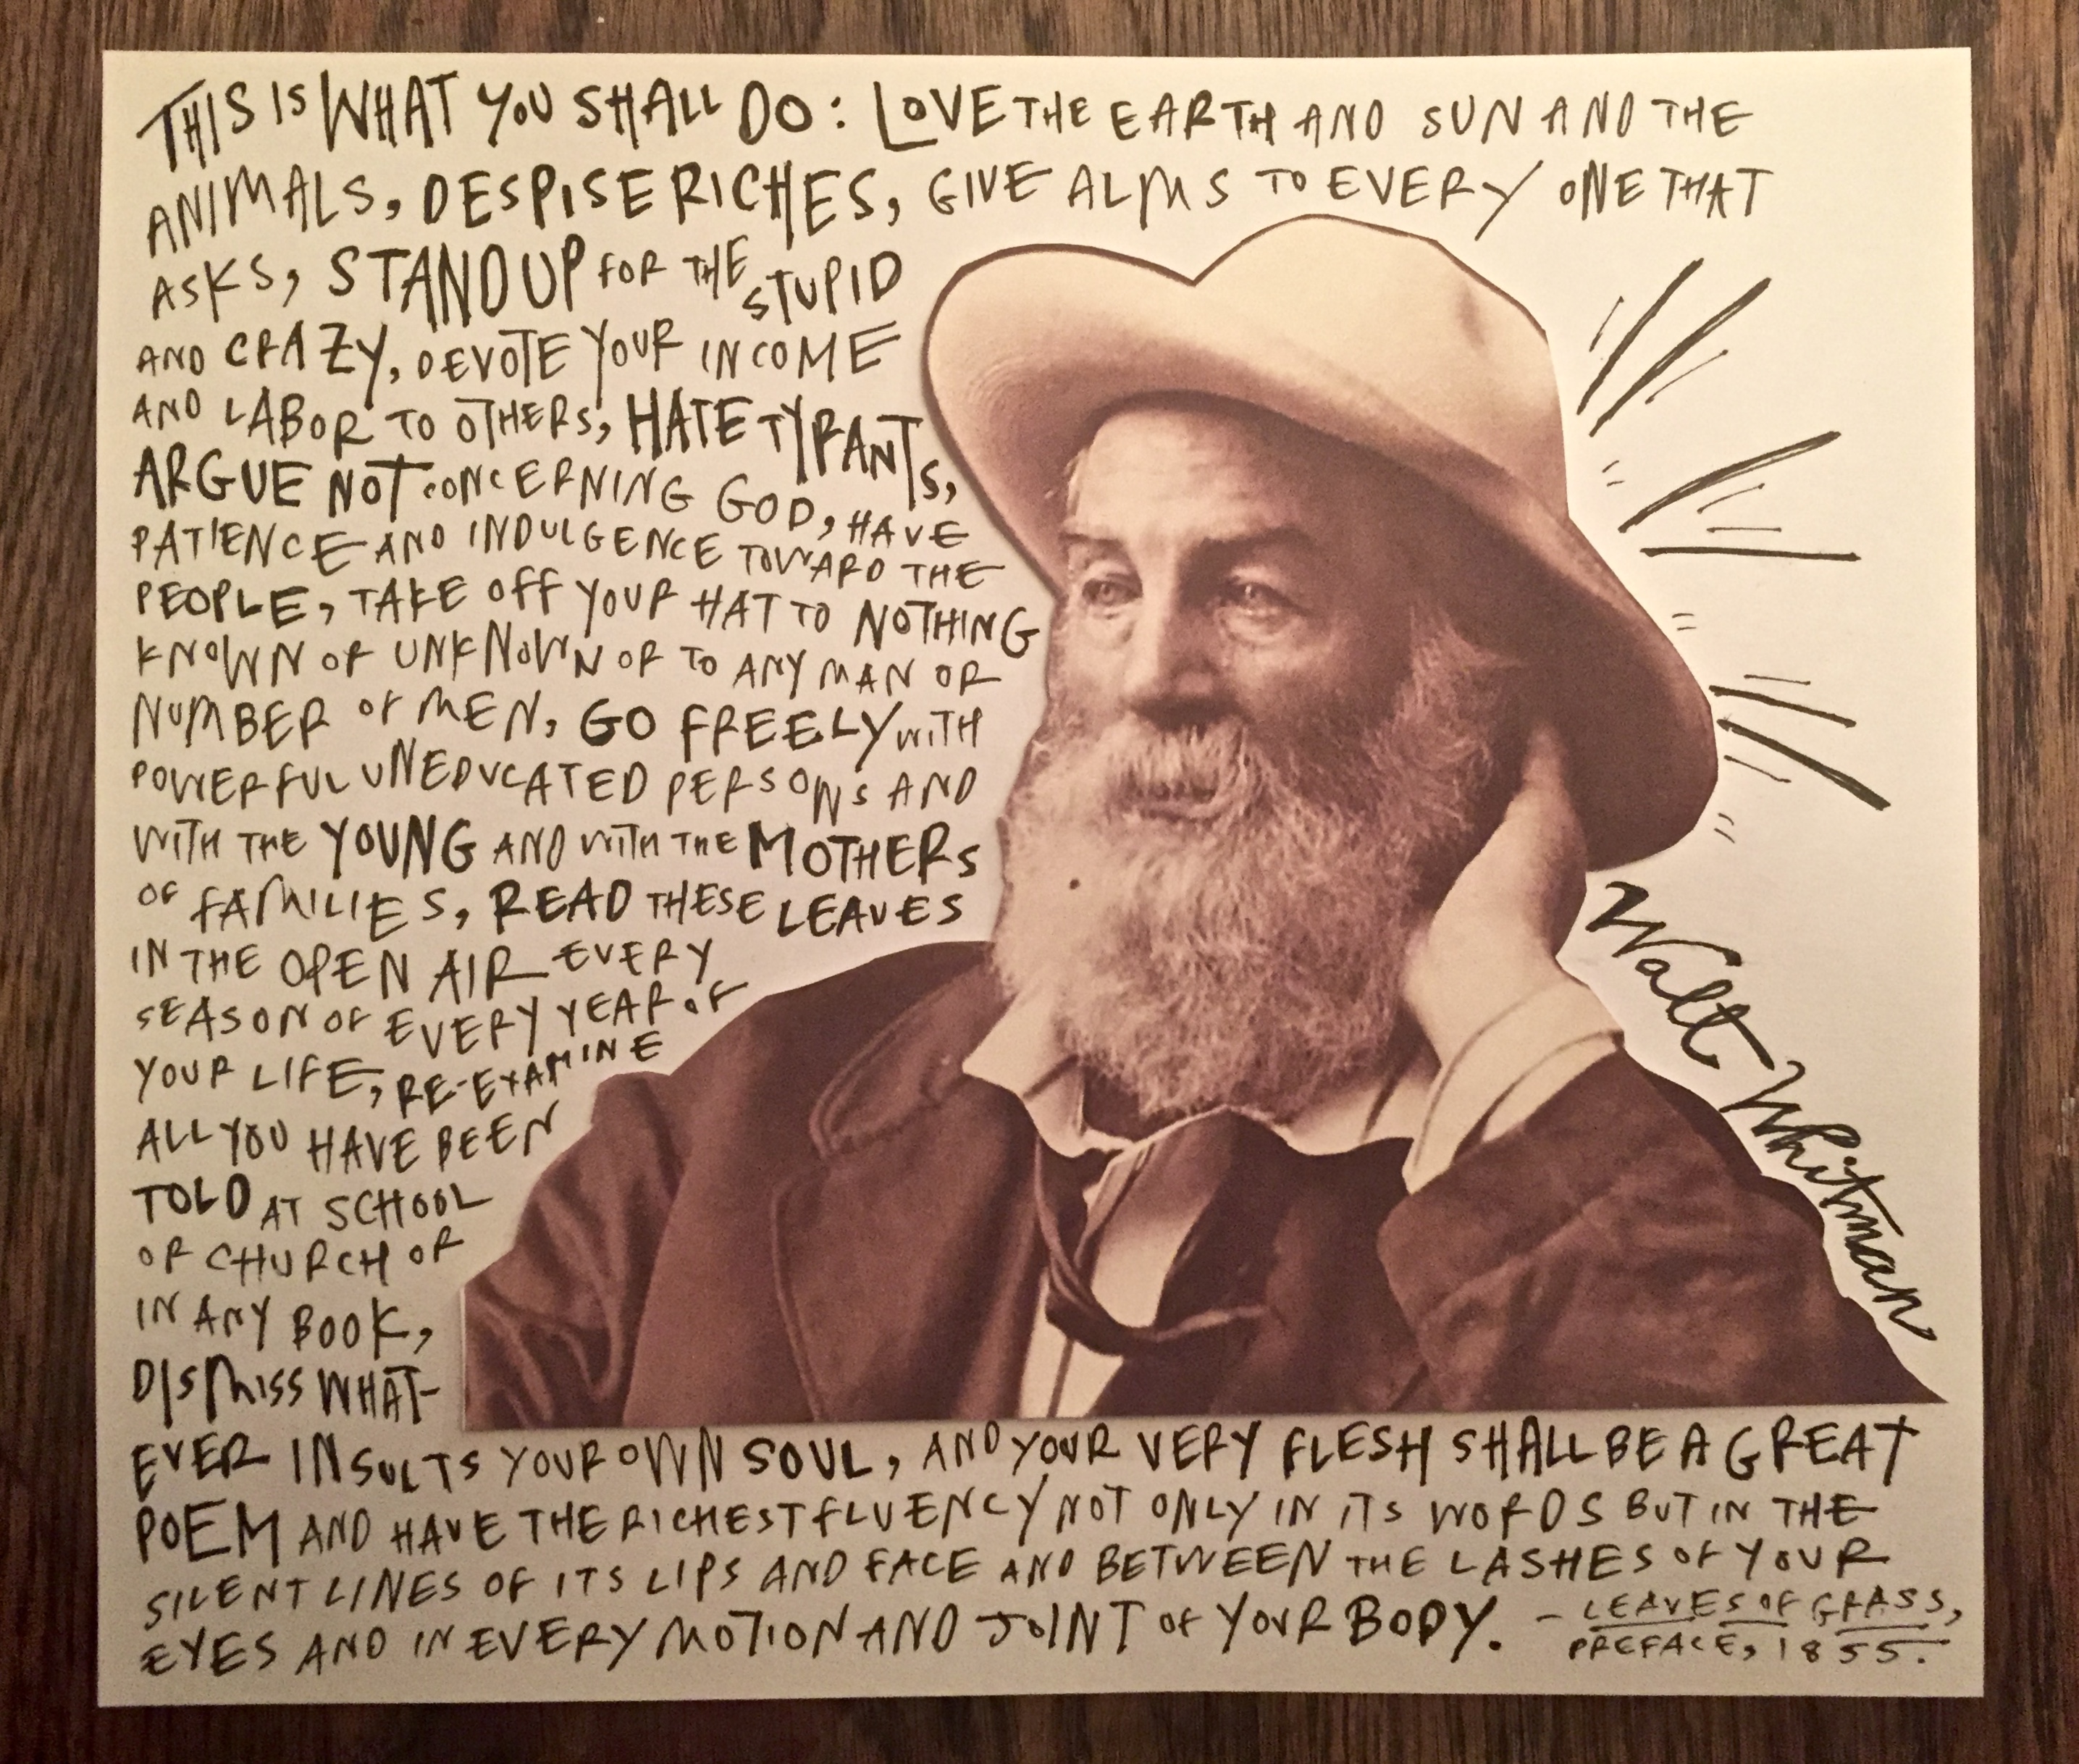 THIS IS WHAT YOU SHALL DO: LOVE THE EARTH AND SUN AND THE
ANIMALS, DESPISE RICHES, GIVE ALMS TO EVERY ONE THAT
ASKS, STAND UP FOR THE STUPID
AND CRAZY, DEVOTE YOUR INCOME
AND LABOR TO OTHERS, HATE TYRANTS,
ARGUE NOT CONCERNING GOD, HAVE
PATIENCE AND INDULGENCE TOWARD THE
PEOPLE, TAKE OFF YOUR HAT TO NOTHING
KNOWN OR UNKNOWN OR TO ANY MAN OR
NUMBER OF MEN, GO FREELY WITH
POWERFUL UNEDUCATED PERSONS AND
WITH THE YOUNG AND WITH THE MOTHERS
OF FAMILIES, READ THESE LEAVES
IN THE OPEN AIR EVERY
SEASON OF EVERY YEAR OF
YOUR LIFE, RE-EXAMINE
ALL YOU HAVE BEEN
TOLD AT SCHOOL
OR CHURCH OR
IN ANY BOOK,
DISMISS WHAT-
EVER INSULTS YOUR OWN SOUL, AND YOUR VERY FLESH SHALL BE A GREAT
POEM AND HAVE THE RICHEST FLUENCY NOT ONLY IN ITS WORDS BUT IN THE
SILENT LINES OF ITS LIPS AND FACE AND BETWEEN THE LASHES OF YOUR
EYES AND IN EVERY MOTION AND JOINT OF YOUR BODY. - LEAVES OF GRASS,
PREFACE, 1855.
Walt Whitman